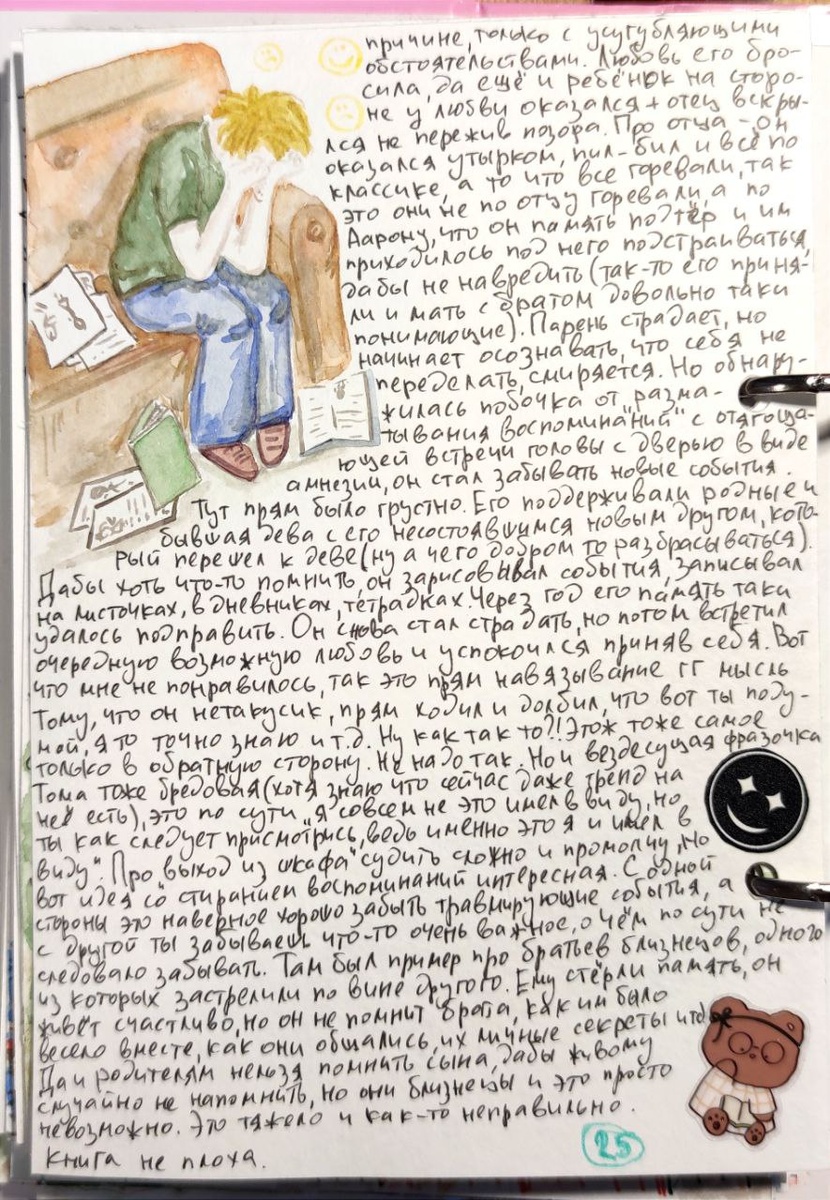 причине, только с усугубляющими
обстоятельствами. Любовь его бро-
сила, да ещё и ребёнок на сторо-
не у любви оказался + отец вскры-
лся не пережив позора. Про отца - он
оказался утырком, пил-бил и всё по
классике, а то что все горевали, так
это они не по отцу горевали, а по
Аарону, что он память подтёр и им
приходилось под него подстраиваться,
дабы не навредить (так-то его приня-
ли и мать с братом довольно таки
понимающие). Парень страдает, но
начинает осознавать, что себя не
переделать, смиряется. Но обнару-
жилась побочка от "разма-
тывания воспоминаний" с отягоща-
ющей встречи головы с дверью в виде
амнезии, он стал забывать новые события.
Тут прям было грустно. Его поддерживали родные и
бывшая дева с его несостоявшимся новым другом, кото-
рый перешел к деве (ну а чего добром то разбрасываться).
Дабы хоть что-то помнить, он зарисовывал события, записывал
на листочках, в дневниках, тетрадках. Через год его память таки
удалось подправить. Он снова стал страдать, но потом встретил
очередную возможную любовь и успокоился приняв себя. Вот
что мне не понравилось, так это прям навязывание гг мысль
Тому, что он нетакусик, прям ходил и долбил, что вот ты поду-
май, я то точно знаю и т.д. Ну как так то?! Это ж тоже самое
только в обратную сторону. Не надо так. Но и вездесущая фразочка
Тома тоже бредовая (хотя знаю что сейчас даже тренд на
неё есть), это по сути "я совсем не это имел в виду, но
ты как следует присмотрись, ведь именно это я и имел в
виду". Про выход из "шкафа" судить сложно и промолчу, но
вот идея со стиранием воспоминаний интересная. С одной
стороны это наверное хорошо забыть травмирующие события, а
с другой ты забываешь что-то очень важное, о чём по сути не
следовало забывать. Там был пример про братьев близнецов, одного
из которых застрелили по вине другого. Ему стёрли память, он
живёт счастливо, но он не помнит брата, как им было
весело вместе, как они общались, их личные секреты и
Да и родителям нельзя помнить сына, дабы живому
случайно не напомнить, но они близнецы и это просто
невозможно. Это тяжело и как-то неправильно.
Книга не плоха.
25